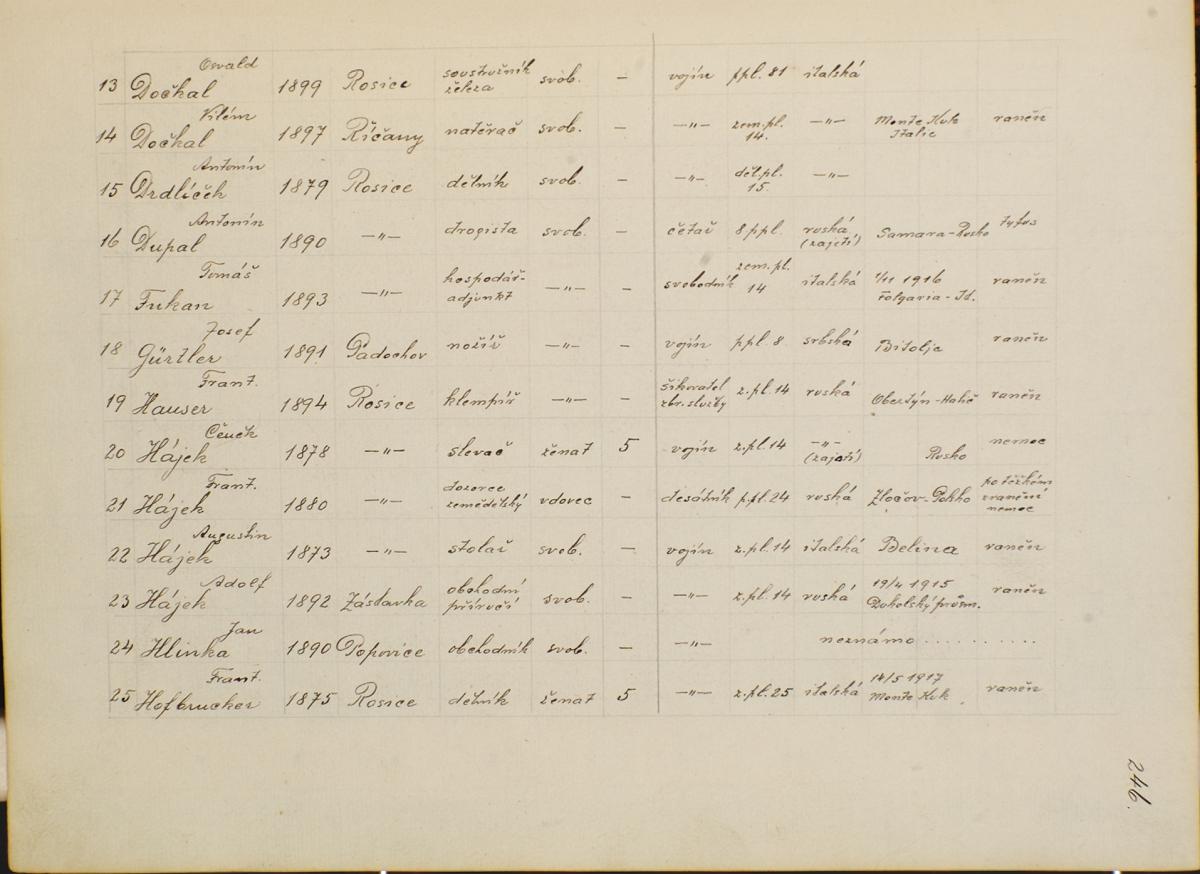 Osvald
13 Dočkal 1899 Rosice soustružník železa svob. – vojín ppl. 81 italská
Vilém
14 Dočkal 1897 Říčany natěrač svob. – –„– zem.pl. 14. –„– Monte Kuk Italie raněn
Antonín
15 Drdlíček 1879 Rosice dělník svob. – –„– děl.pl. 15. –„–
Antonín
16 Dupal 1890 –„– drogista svob. – četař 8 ppl. ruská (zajetí) Samara-Rusko tyfus
Tomáš
17 Fukan 1893 –„– hospodář-adjunkt –„– – svobodník zem.pl. 14 italská 1916 Folgaria-It. raněn
Josef
18 Gürtler 1891 Padochov nožíř –„– – vojín ppl. 8. srbská Bitolje raněn
Frant.
19 Hauser 1894 Rosice klempíř –„– – šikovatel zbr. služby z.pl.14 ruská Obertýn-Halič raněn
Čeněk
20 Hájek 1878 –„– slevač ženat 5 vojín z.pl.14 –„– (zajetí) Rusko nemoc
Frant.
21 Hájek 1880 –„– dozorce zemědělský vdovec – desátník p.pl.24 ruská Zločov- po těžkém zranění nemoc
Augustin
22 Hájek 1873 –„– stolař svob. – vojín z.pl.14 italská Belina raněn
Adolf
23 Hájek 1892 Zástavka obchodní příručí svob. – –„– z.pl.14 ruská 19/4 1915 Dukelský průsm. raněn
Jan
24 Hlinka 1890 Popovice obchodník svob. – –„– neznámo . . . . . . . . . .
Frant.
25 Hofbrucher 1875 Rosice dělník ženat 5 –„– z.pl.25 italská 14/5 1917 Monte Kuk raněn
246.